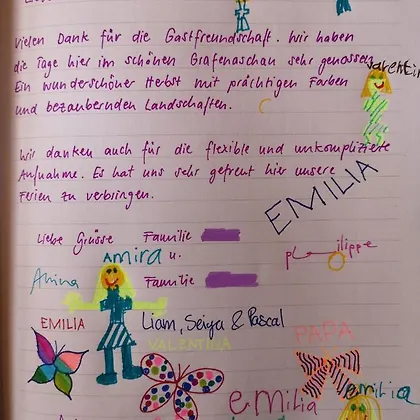 Vielen Dank für die Gastfreundschaft. Wir haben
die Tage hier im schönen Grafenaschau sehr genossen.
Valentin
Ein wunderschöner Herbst mit prächtigen Farben
und bezaubernden Landschaften.
Wir danken auch für die flexible und unkomplizierte
Aufnahme. Es hat uns sehr gefreut hier unsere
Ferien zu verbringen.
EMILIA
Liebe Grüsse Familie
Amira u.
philippe
Amina Familie
EMILIA
Liam, Seiya & Pascal
VALENTINA
PAPA
emilia
emilia